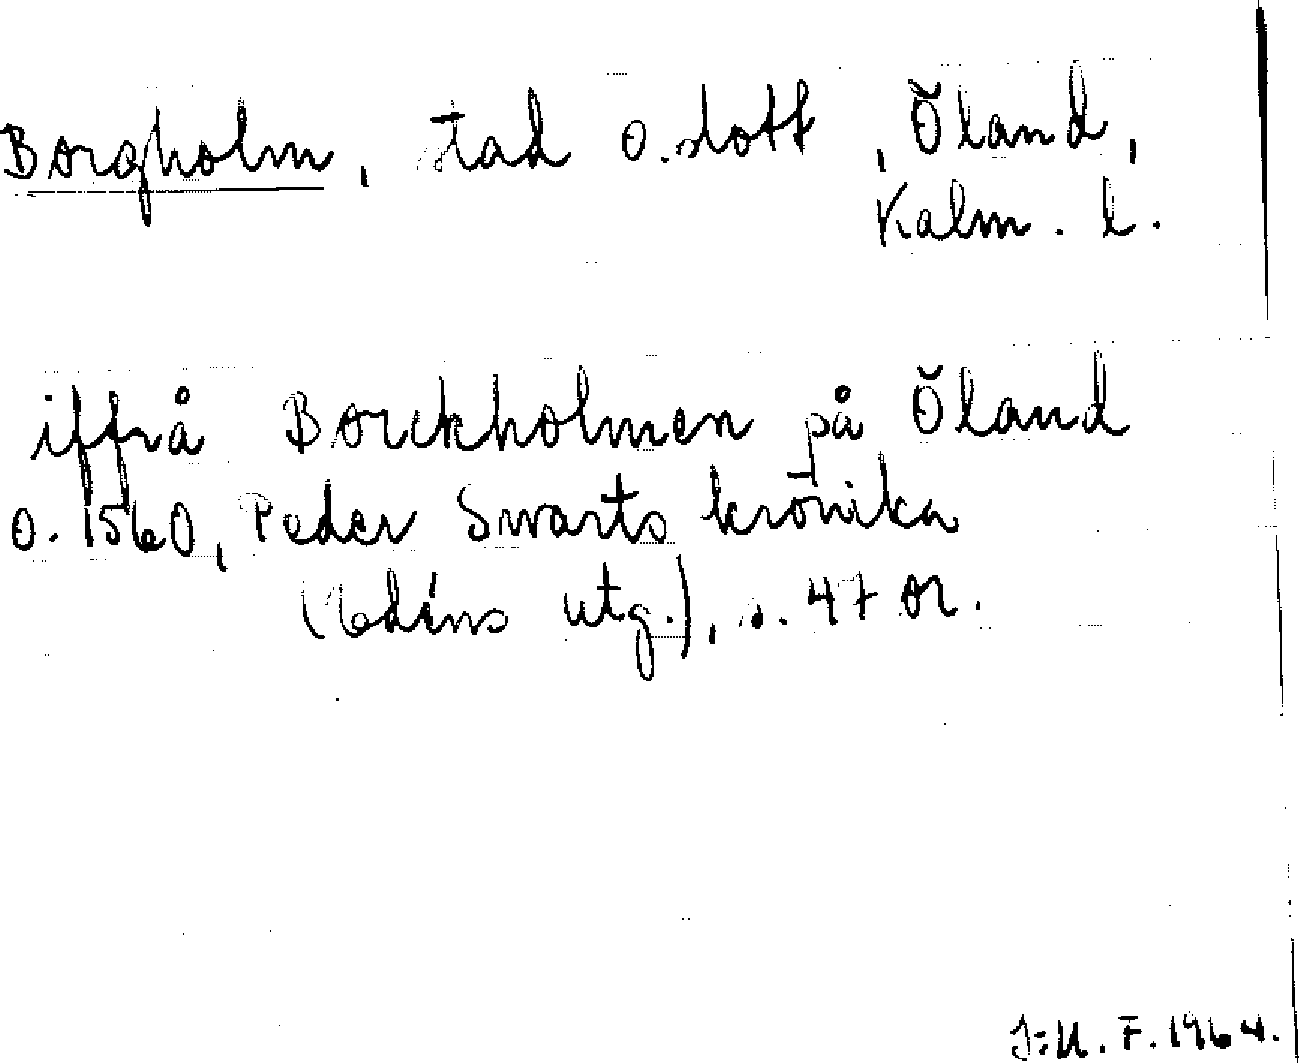 Borgholm, stad o. slott, Öland,
Kalm. l.
iffrå Borckholmen på Öland
o. 1560, Peder Swarts krönika
(Edéns utg.), s. 47 or.
J:U. F. 1964.